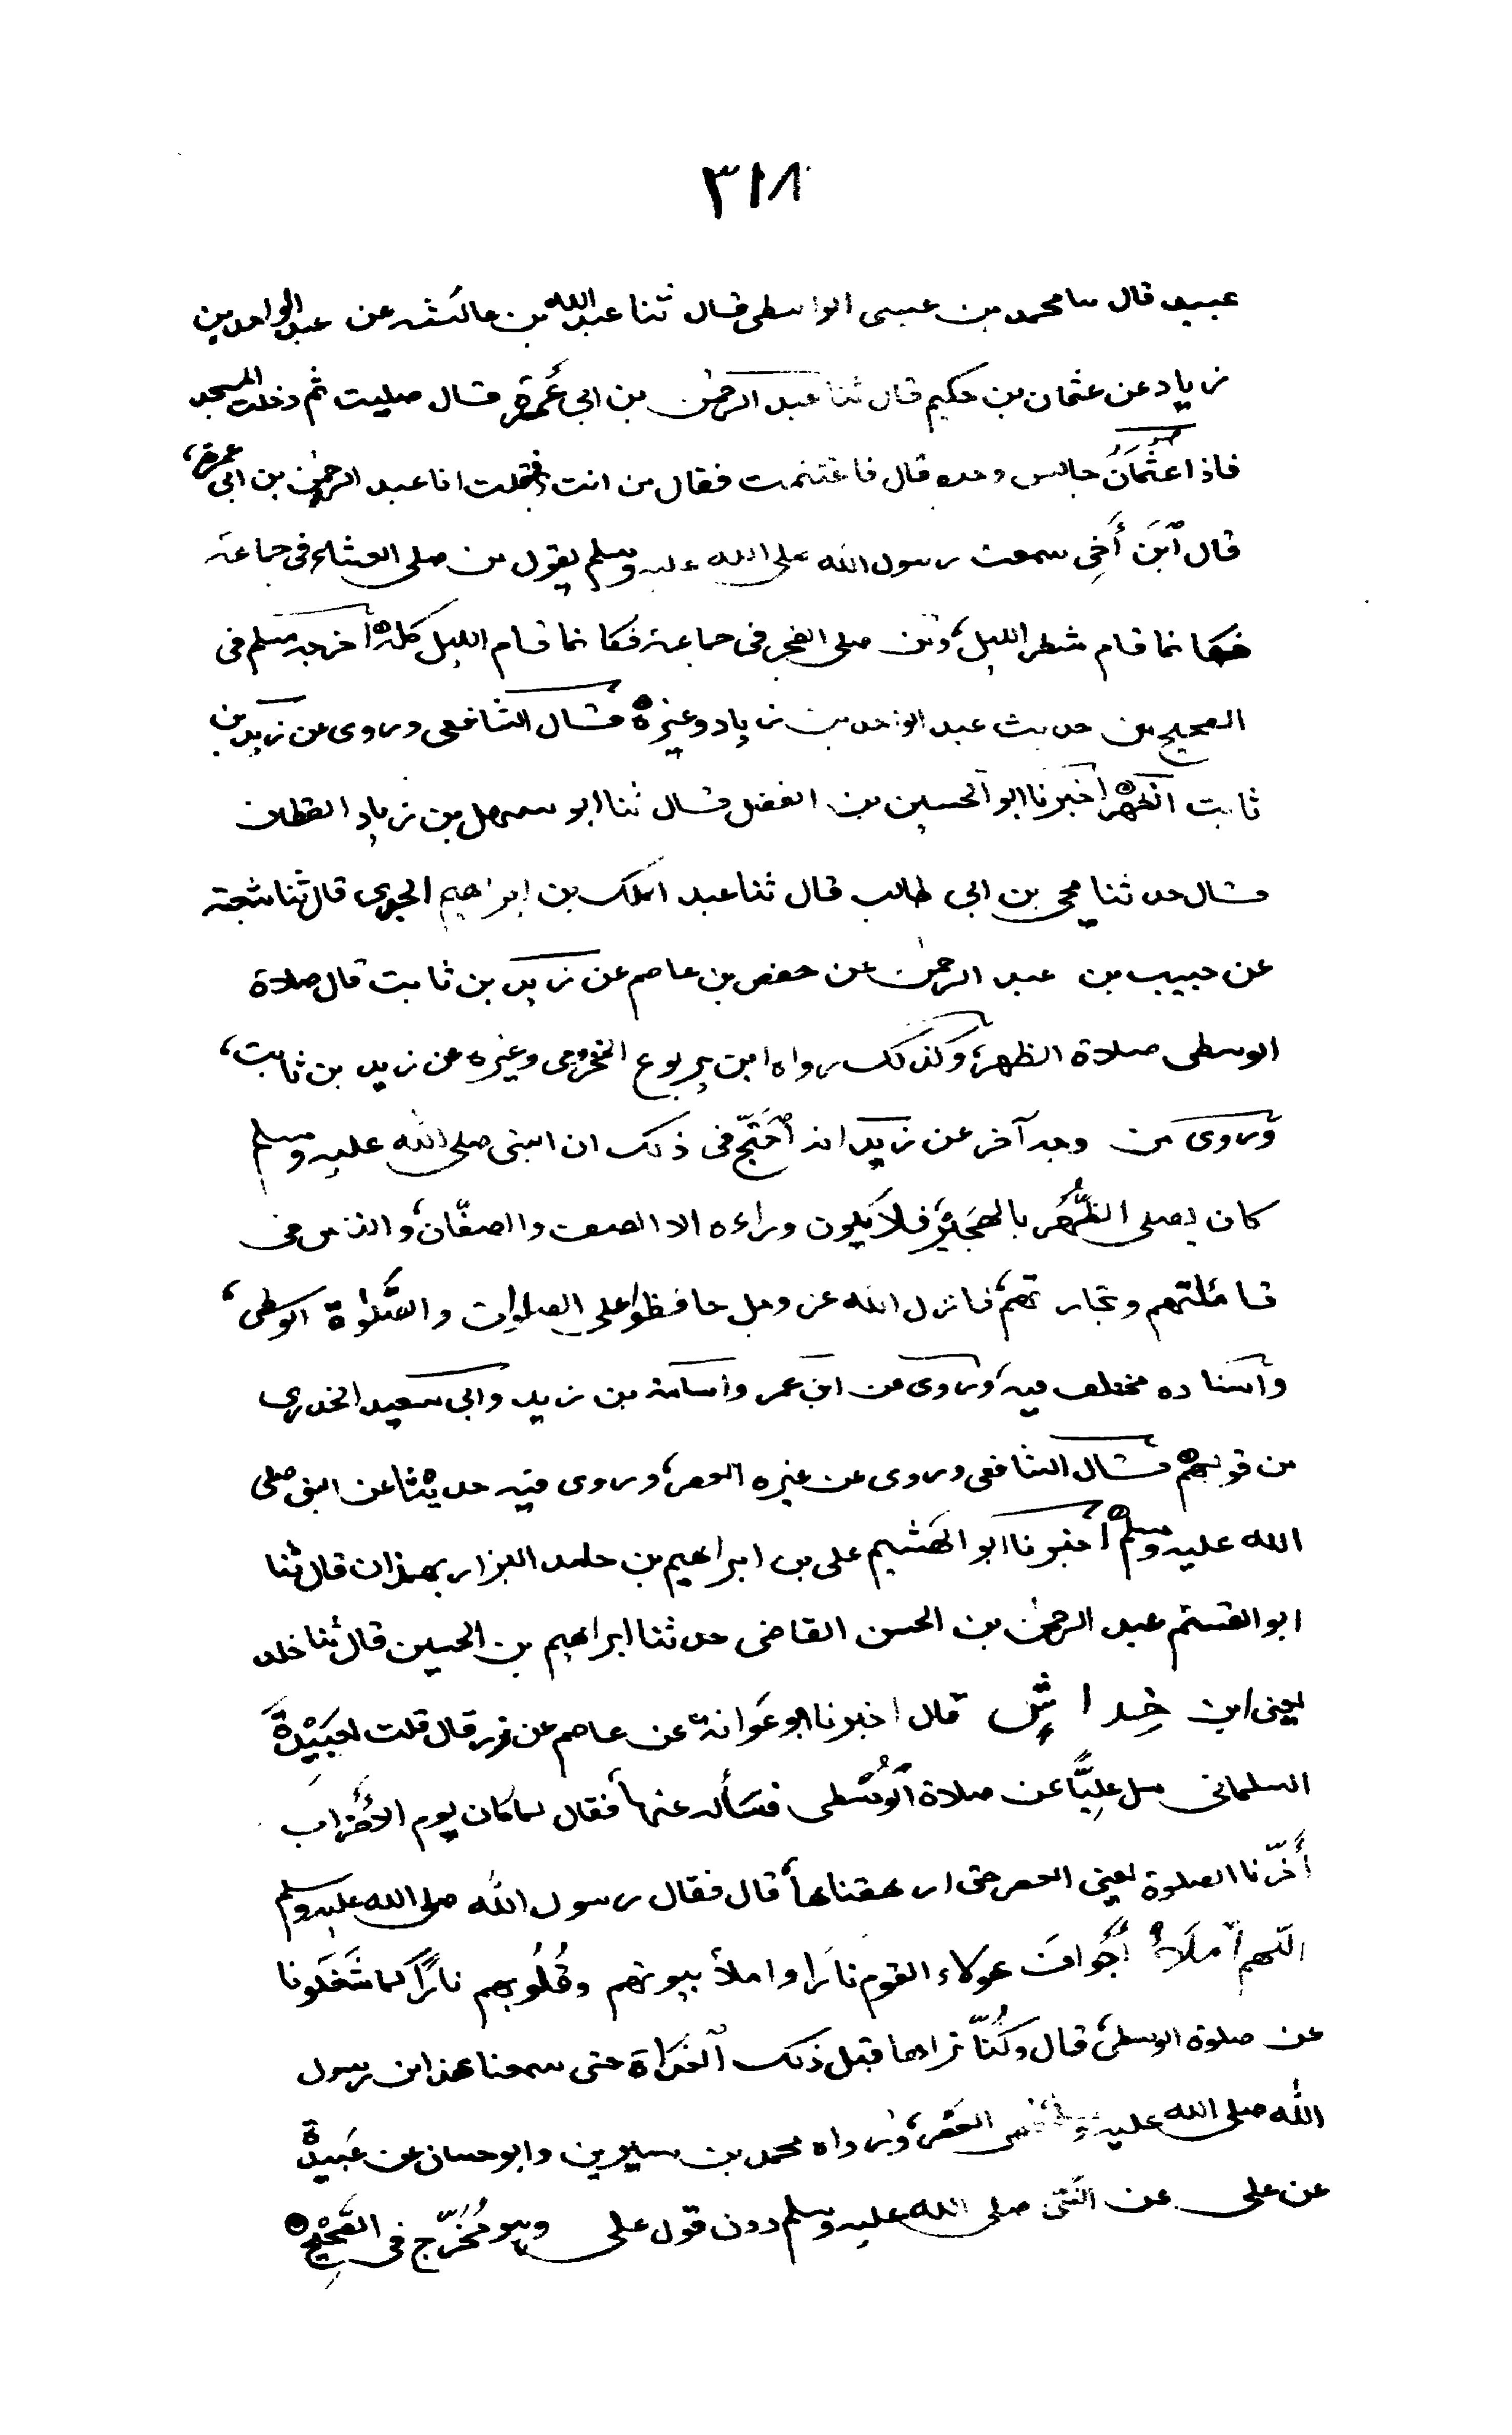 ٣١٨
عبيد قال سا محمد بن عيسى الواسطى قال ثنا عبد الله بن عائشه عن عبد الواحد بن
زياد عن عثمان بن حكيم قال ثنا عبد الرحمٰن بن ابى عُمرة قال صليت ثم دخلت المسجد
فاذا عثمانُ جالس وحده قال فاغتنمت فقال من انت فقلت انا عبد الرحمٰن بن ابى عمرة،
قال ابن أخى سمعت رسول الله صلى الله عليه وسلم يقول من صلى العشاء فى جماعة
فكانما قام شطر الليل، ومن صلى الفجر فى جماعة فكانما قام الليل كله ه أخرجه مسلم فى
الصحيح من حديث عبد الواحد بن زياد وغيره ه قال الشافعى وروى عن زيد بن
ثابت الظهر ه أخبرنا ابو الحسين بن الفضل قال ثنا ابو سهل بن زياد القطان
قال حدثنا يحيى بن ابى طالب قال ثنا عبد الملك بن ابراهيم الجدى قال ثنا شعبة
عن حبيب بن عبد الرحمٰن عن حفص بن عاصم عن زيد بن ثابت قال صلاة
الوسطى صلاة الظهر، وكذلك رواه ابن يربوع المخزومى وغيره عن زيد بن ثابت،
وروى من وجه آخر عن زيد انه أحتجّ فى ذلك ان النبى صلى الله عليه وسلم
كان يصلى الظُّهر بالهجير، فلا يكون وراءه الا الصف والصفّان، والناس فى
قائلتهم وتجارتهم، فانزل الله عز وجل حافظوا على الصلوات والصَّلٰوة الوسطى،
واسناده مختلف فيه، وروى عن ابن عمر واسامة بن زيد وابى سعيد الخدرى
من قولهم ه قال الشافعى وروى عن غيره العصر، وروى فيه حديثا عن النبى صلى
الله عليه وسلم ه أخبرنا ابو الهشيم على بن ابراهيم بن حامد البزار بهمذان قال ثنا
ابو القسم عبد الرحمٰن بن الحسن القاضى حدثنا ابراهيم بن الحسين قال ثنا خلد
يعنى ابن خِداشٍ قال اخبرنا ابو عَوانة عن عاصم عن زر قال قلت لعَبِيْدةَ
السلمانى سل عليًّا عن صلاة الوُسْطى فسَأله عنها، فقال لما كان يوم الأحْزاب
أَخّرنا الصلوة يعنى العصر حتى ارهقناها، قال فقال رسول الله صلى الله عليه وسلم
اللّهم أملأ أجواف هولاء القوم نارًا واملأ بيوتهم وقُلُوبهم نارًا كما شَغَلونا
عن صلوة الوسطى، قال وكُنّا نراها قبل ذلك الغداة حتى سمعنا هذا من رسول
الله صلى الله عليه العصر، ورواه محمد بن سيرين وابو حسان عن عَبيدة
عن على عن النبى صلى الله عليه وسلم دون قول على وهو مُخَرّج فى الصَّحيْح ه